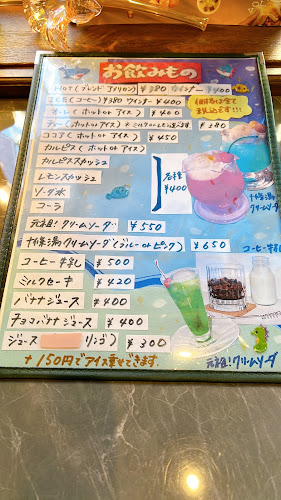 お飲みもの
HOT (ブレンド アメリカン) ¥380 ウインナー ¥400
アイスコーヒー ¥380 ウインナー ¥400
オーレ (ホット or アイス) ¥400
ティー (ホット or アイス) ¥380
ココア (ホット or アイス) ¥450
カルピス (ホット or アイス)
カルピススカッシュ
レモンスカッシュ
ソーダ水
コーラ
各種
¥400
十條湯
クリームソーダ
元祖!クリームソーダ ¥550
十條湯クリームソーダ (ブルー or ピンク) ¥650
コーヒー牛乳
コーヒー牛乳 ¥500
ミルクセーキ ¥420
バナナジュース ¥400
チョコバナナジュース ¥400
ジュース リンゴ) ¥300
+150円でアイス乗せできます
元祖!クリームソーダ